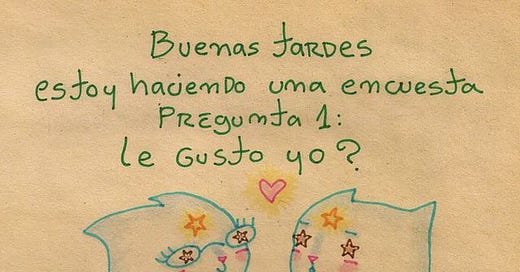 Buenas tardes
estoy haciendo una encuesta
Pregunta 1:
Le gusto yo?